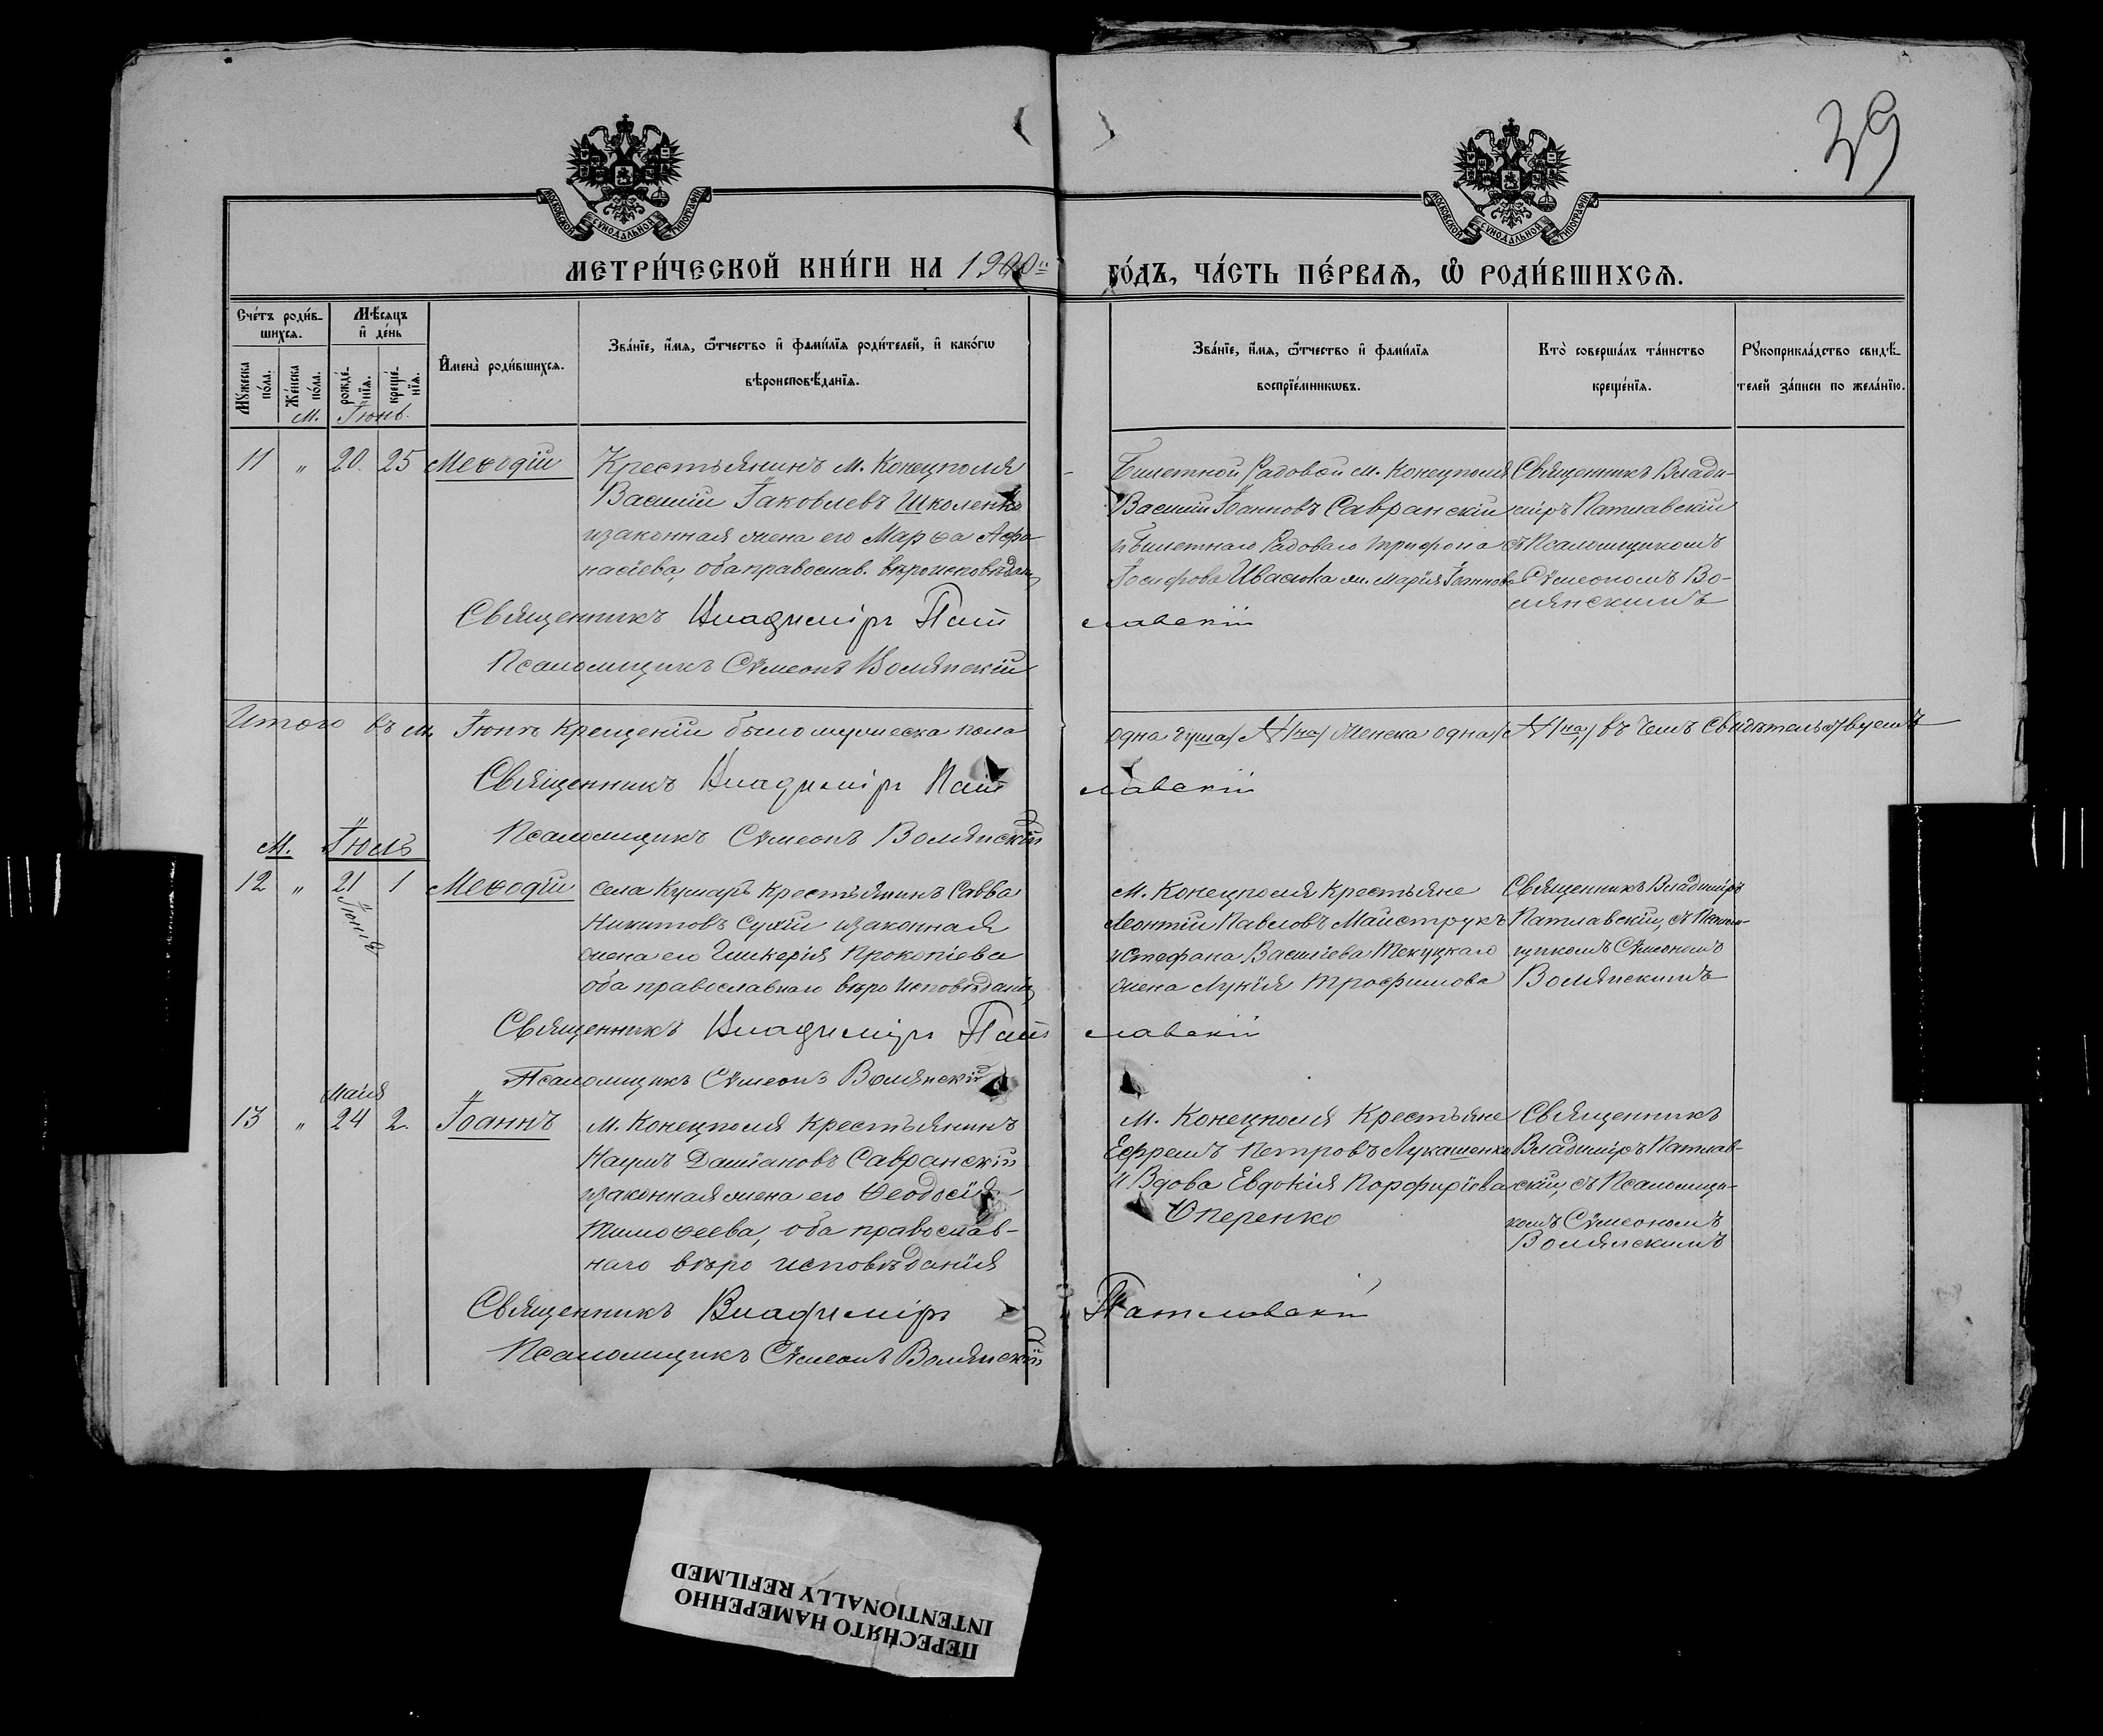 39
МОСКОВСКОЙ СУНОДАЛЬНОЙ ТИПОГРАФІИ
МОСКОВСКОЙ СУНОДАЛЬНОЙ ТИПОГРАФІИ
МЕТРИ́ЧЕСКОЙ КНИ́ГИ НА 1900й
ГО́ДЪ, ЧА́СТЬ ПЕ́РВАѦ, Ѽ РОДИ́ВШИХСѦ.
Сче́тъ роди́в-
шихсѧ.
Мѣ́сѧцъ
и҆ де́нь
Мꙋ́жеска по́ла.
Же́нска по́ла.
рожде́-нїѧ.
креще́-нїѧ.
И҆мена̀ роди́вшихсѧ.
Зва́нїе, и҆́мѧ, ѻ҆́тчество и҆ фами́лїѧ роди́телей, и҆ како́гѡ
вѣроисповѣ́данїѧ.
Зва́нїе, и҆́мѧ, ѻ҆́тчество и҆ фами́лїѧ
воспрїе́мникѡвъ.
Кто̀ соверша́лъ та́инство
креще́нїѧ.
Рꙋкоприкла́дство свидѣ́-
телей за́писи по жела́нїю.
М. Іюнь.
11 " 20. 25 Меѳодій
Крестьянинъ м. Конецполя
Василій Іаковлевъ Школенко
изаконная жена его Марѳа Афа-
насіева, оба православ. вѣроисповѣдан.
Билетной Рядовой м. Конецполя
Василій Іоанновъ Савранскій
и Билетнаго Рядоваго Трифона
Іосифова Ивасюка ж. Марія Іоаннова
Священникъ Влади-
міръ Патлавскій
съ Псаломщикомъ
Сѵмеономъ Во-
лянскимъ
Священникъ Владиміръ Патлавскій
Псаломщикъ Сѵмеонъ Волянскій
Итого въ м. Іюнѣ крещеній было мужеска пола одна душа /№ 1на/ Женска одна /№ 1на/ въ чемъ свидѣтельствуемъ
Священникъ Владиміръ Патлавскій
Псаломщикъ Сѵмеонъ Волянскій
М. Іюль
12 " 21 1 Меѳодій
Іюнія
села Кумаръ Крестьянинъ Савва
Никитовъ Сухій изаконная
жена его Гликерія Прокопіева
оба православнаго вѣро исповѣданія
М. Конецполя Крестьяне
Леонтій Павловъ Майструкъ
и Стефана Василіева Текуцкаго
жена Лукія Трофимова
Священникъ Владиміръ
Патлавскій, съ Псалом-
щикомъ Сѵмеономъ
Волянскимъ
Священникъ Владиміръ Патлавскій
Псаломщикъ Сѵмеонъ Волянскій
Маія
13 " 24 2. Іоаннъ
М. Конецполя Крестьянинъ
Наумъ Даміановъ Савранскій
изаконная жена его Ѳеодосія
Тимоѳеева, оба православ-
наго вѣро исповѣданія
М. Конецполя Крестьяне
Ефремъ Петровъ Лукашенко
и Вдова Евдокія Порфиріева
Оперенко
Священникъ
Владиміръ Патлав-
скій, съ Псаломщи-
комъ Сѵмеономъ
Волянскимъ
Священникъ Владиміръ Патлавскій
Псаломщикъ Сѵмеонъ Волянскій
ПЕРЕСНЯТО НАМЕРЕННО
INTENTIONALLY REFILMED